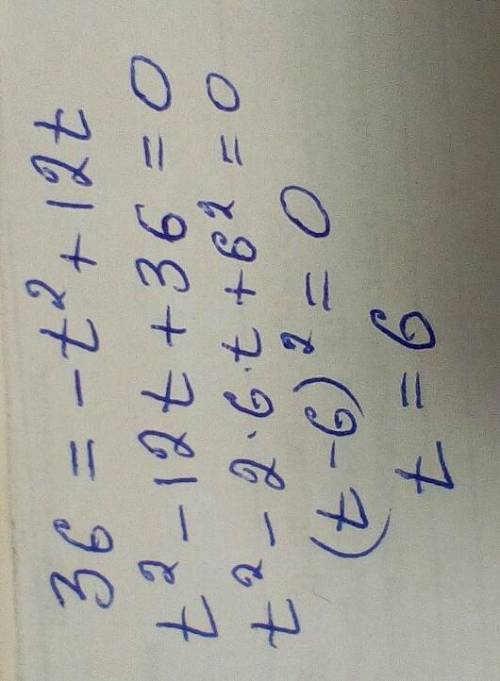 36 = -t² + 12t
t² - 12t + 36 = 0
t² - 2·6·t + 6² = 0
(t - 6)² = 0
t = 6